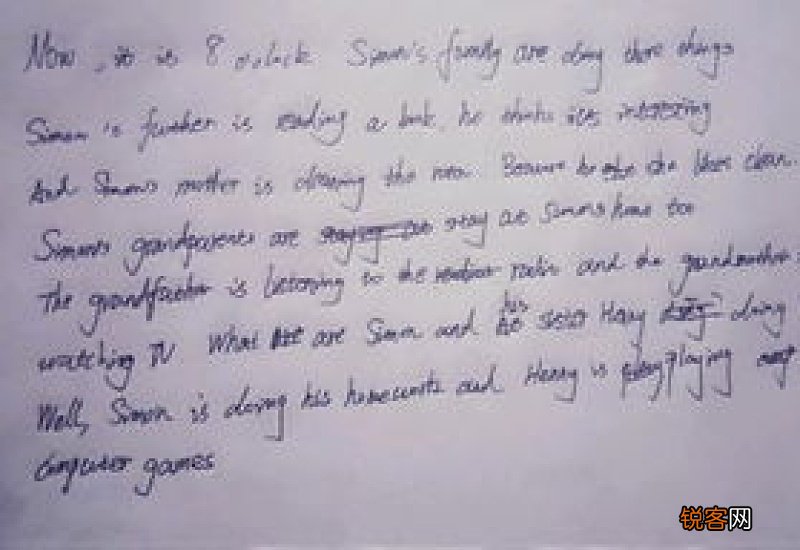 Now, it is 8 o'clock Simon's family are doing there things
Simon's further is reading a book, he thinks it's interesting
And Simon's mother is cleaning the room Because she likes clean.
Simon's grandparents are stay at Simon's home too
The grandfather is listening to the radio and the grandmother
watching TV What are Simon and his sister Henry doing
Well, Simon is doing his homework and Henry is playing
computer games
锐客网